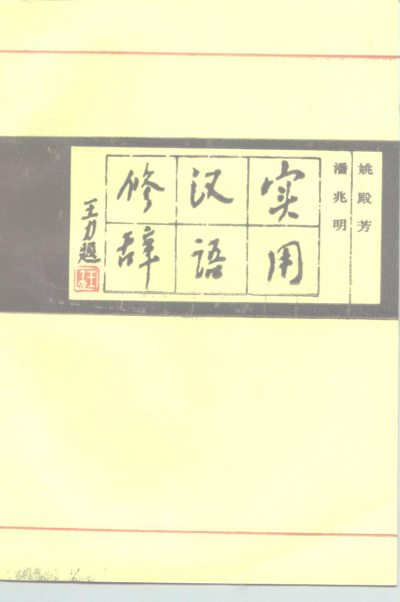 姚殿芳
潘兆明
实用
汉语
修辞
王力题